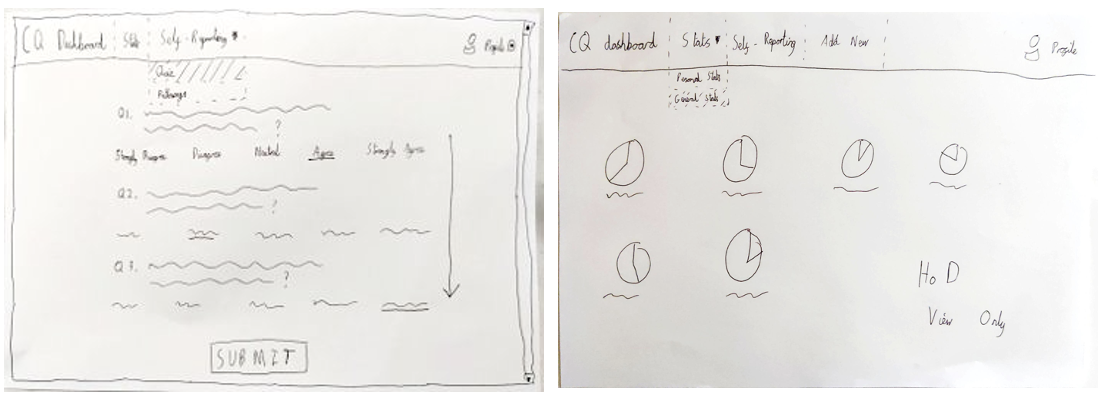 CQ Dashboard Stats Self-Reporting Profile
Quiz
Pathways
Q1.
?
Strongly Disagree Disagree Neutral Agree Strongly Agree
Q2.
?
Q3.
?
SUBMIT
CQ dashboard Stats Self-Reporting Add New Profile
Personal Stats
General Stats
HoD
View Only